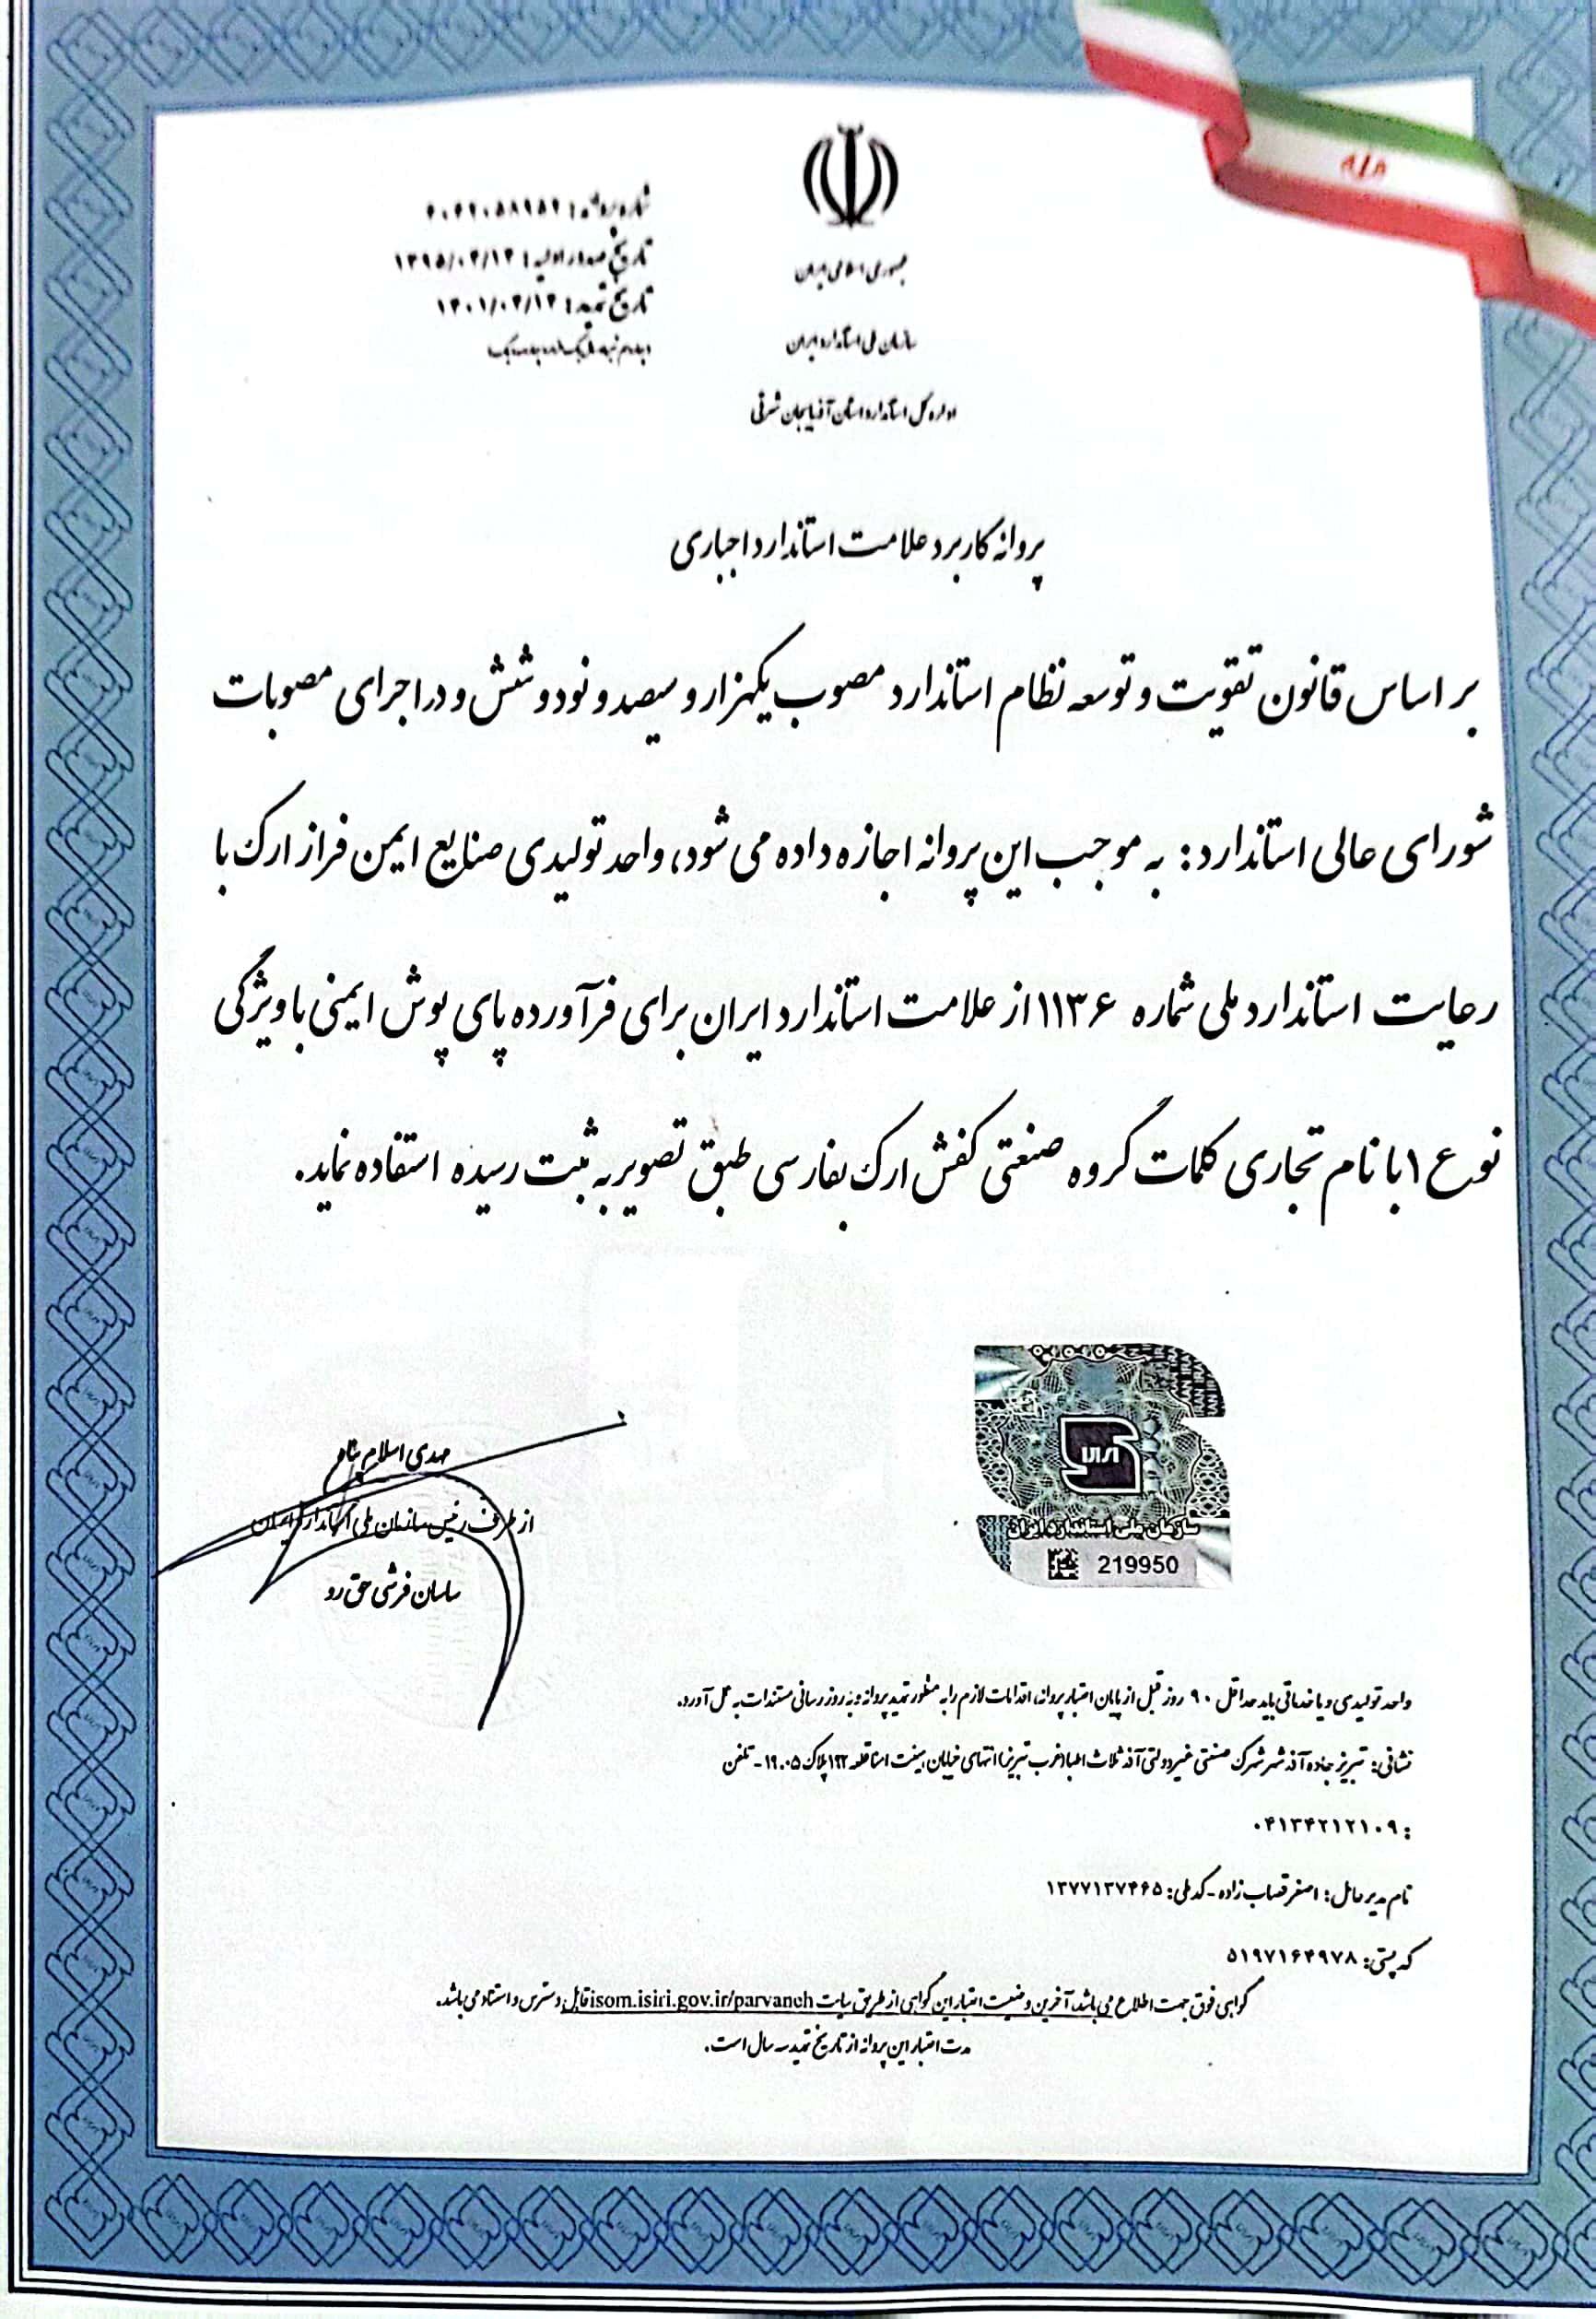 جمهوری اسلامی ایران
سازمان ملی استاندارد ایران
اداره کل استاندارد استان آذربایجان شرقی
شماره پروانه :
تاریخ صدور اولیه : ۱۳۹۵/۰۴/۱۳
تاریخ تمدید : ۱۴۰۱/۰۴/۱۳
پروانه کاربرد علامت استاندارد اجباری
بر اساس قانون تقویت و توسعه نظام استاندارد مصوب یکهزار و سیصد و نود و شش و در اجرای مصوبات
شورای عالی استاندارد : به موجب این پروانه اجازه داده می شود، واحد تولیدی صنایع ایمن فراز ارک با
رعایت استاندارد ملی شماره ۱۱۳۶ از علامت استاندارد ایران برای فرآورده پای پوش ایمنی با ویژگی
نوع ۱ با نام تجاری کلمات گروه صنعتی کفش ارک بفارسی طبق تصویر به ثبت رسیده استفاده نماید.
سازمان ملی استاندارد ایران
219950
مهدی اسلام پناه
از طرف رئیس سازمان ملی استاندارد ایران
ساسان فرشی حق رو
واحد تولیدی و یا خدماتی باید حداقل ۹۰ روز قبل از پایان اعتبار پروانه، اقدامات لازم را به منظور تمدید پروانه و به روز رسانی مستندات به عمل آورد.
نشانی: تبریز جاده آذرشهر شهرک صنعتی غیردولتی آذر ثلاث اطبا(غرب تبریز) انتهای خیابان بیست قطعه پلاک ۱۹.۰۵ - تلفن
: ۰۴۱۳۴۲۱۲۱۰۹
نام مدیر عامل: اصغر قصاب زاده - کد ملی: ۱۳۷۷۱۳۷۴۶۵
کد پستی: ۵۱۹۷۱۶۴۹۷۸
گواهی فوق جهت اطلاع می باشد، آخرین وضعیت اعتبار این گواهی از طریق سایت isom.isiri.gov.ir/parvaneh قابل دسترس و استناد می باشد.
مدت اعتبار این پروانه از تاریخ تمدید سه سال است.